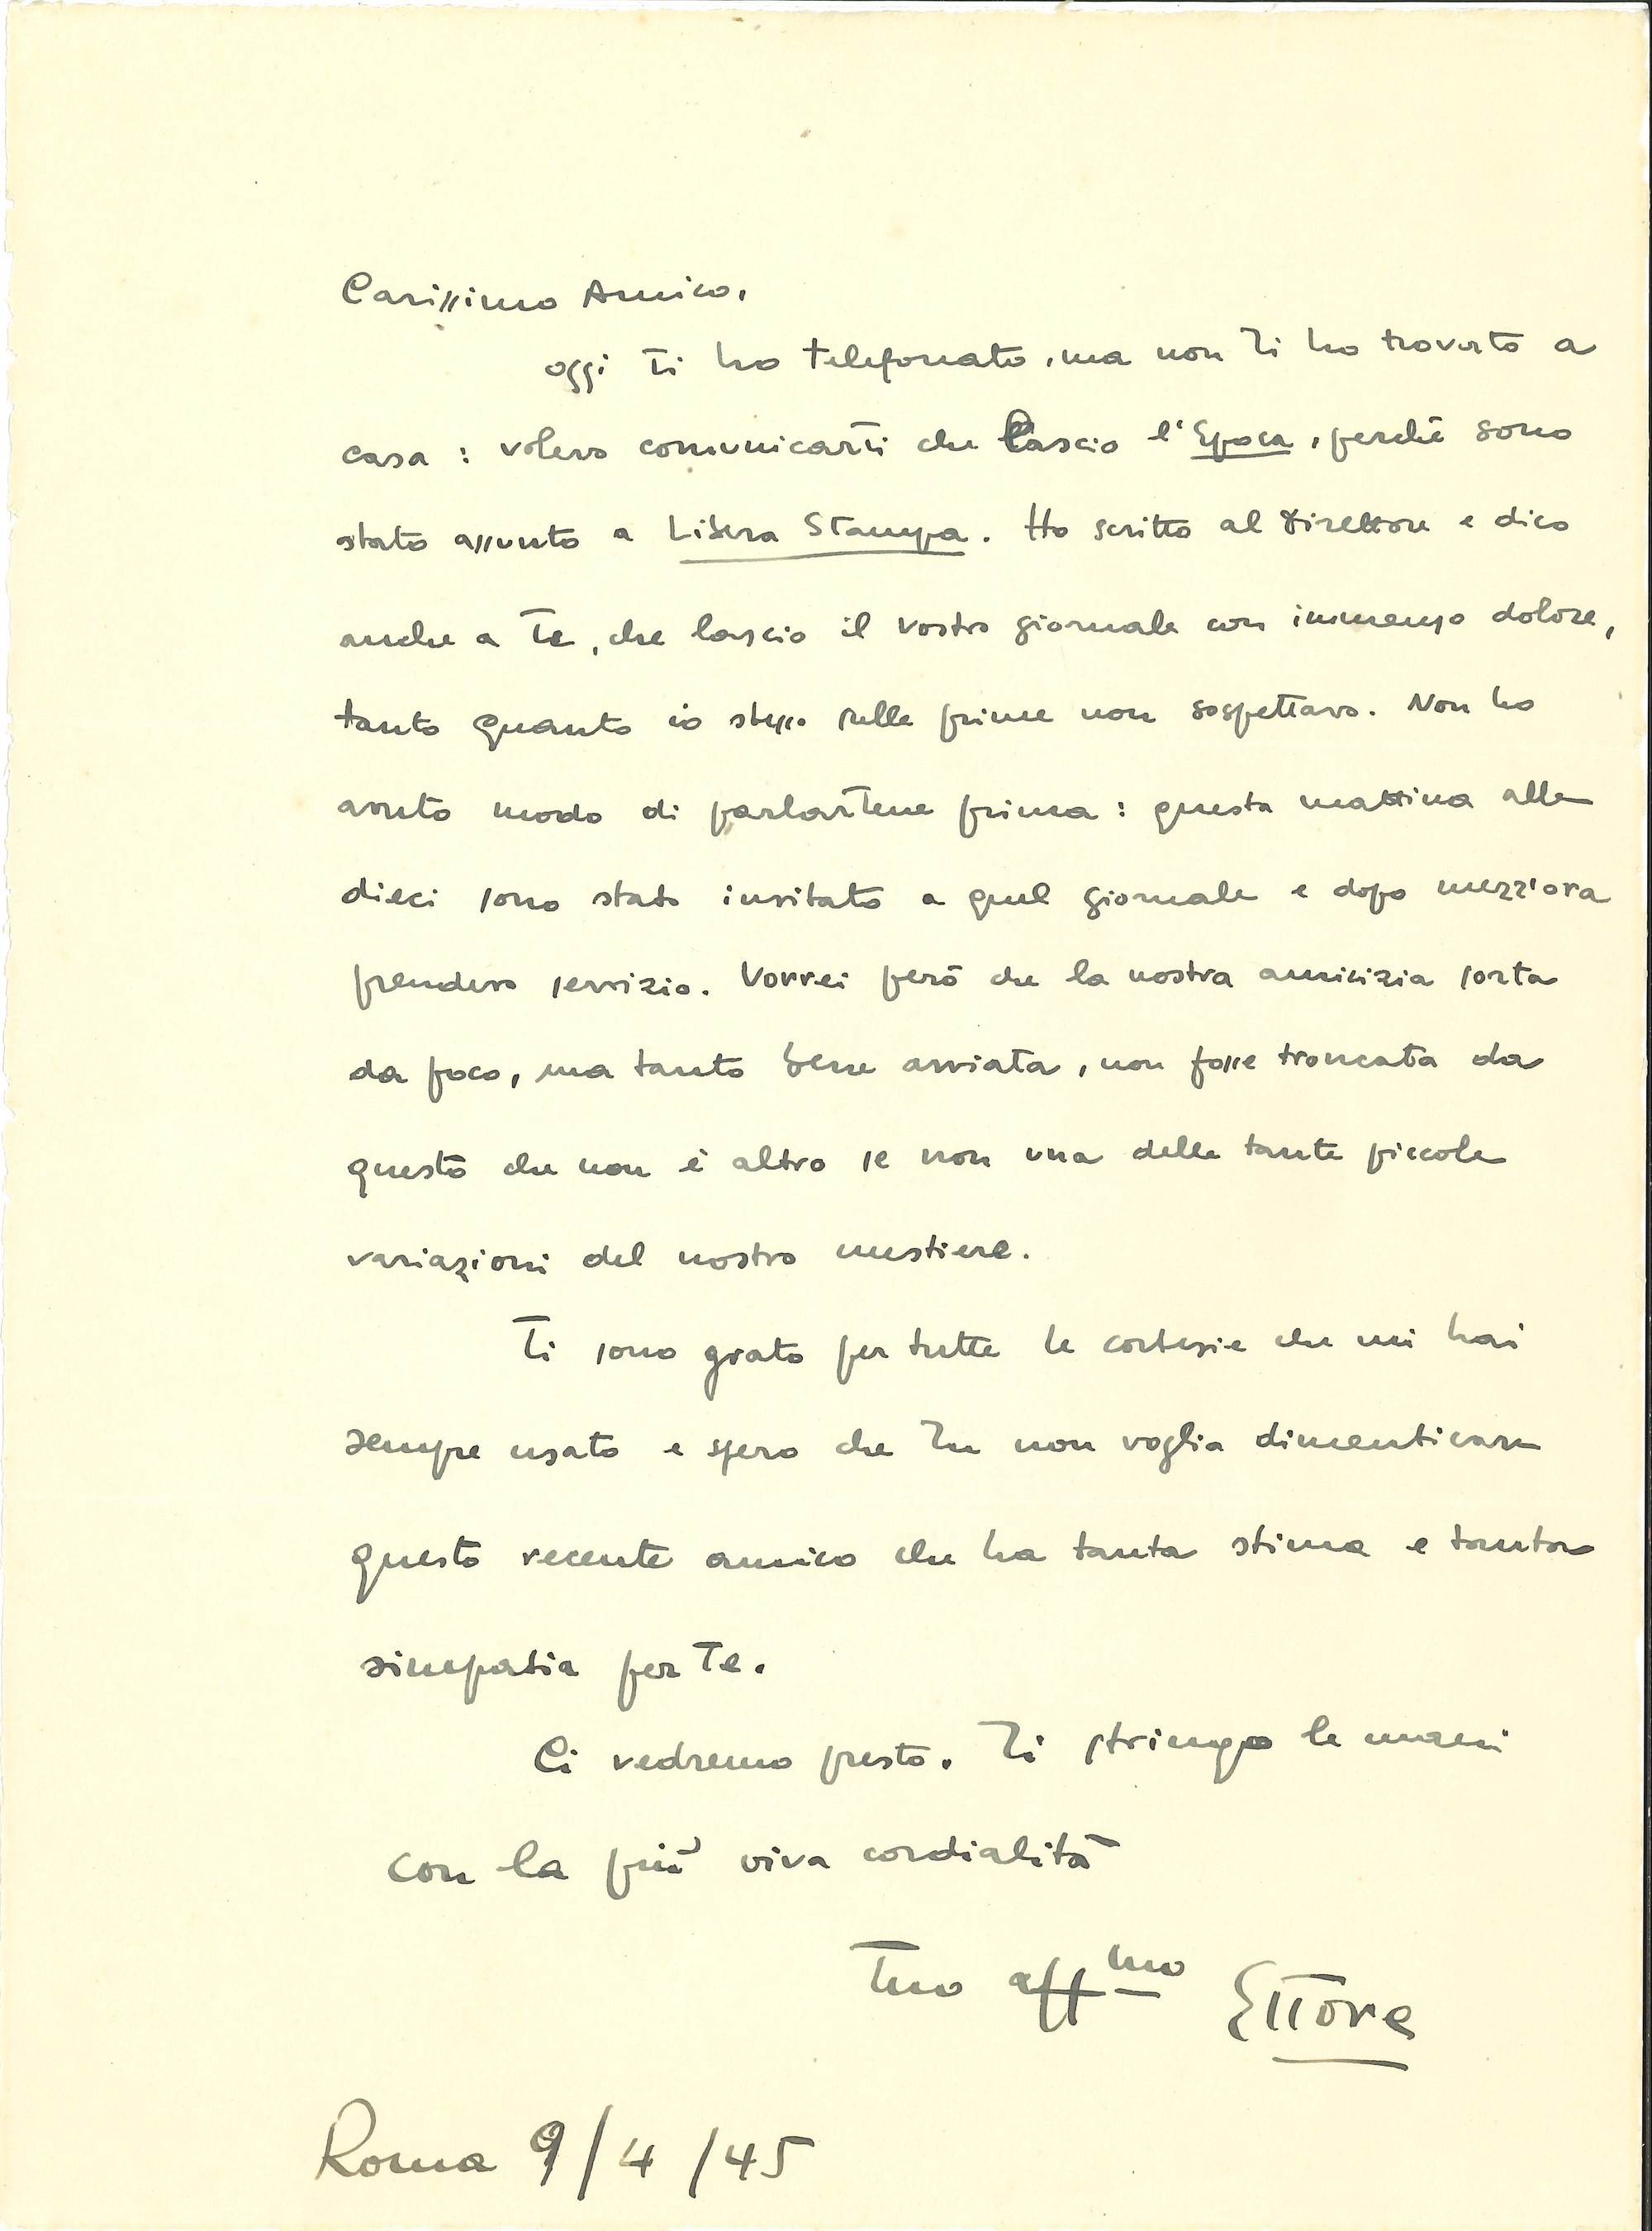 Carissimo Amico,
oggi Ti ho telefonato, ma non Ti ho trovato a
casa: volevo comunicarTi che lascio l'Epoca, perché sono
stato assunto a Libera Stampa. Ho scritto al Direttore e dico
anche a Te, che lascio il vostro giornale con immenso dolore,
tanto quanto io stesso sulle prime non sospettavo. Non ho
avuto modo di parlarTene prima: questa mattina alle
dieci sono stato invitato a quel giornale e dopo mezz'ora
prendevo servizio. Vorrei però che la nostra amicizia sorta
da poco, ma tanto bene avviata, non fosse troncata da
questo che non è altro se non una delle tante piccole
variazioni del nostro mestiere.
Ti sono grato per tutte le cortesie che mi hai
sempre usato e spero che Tu non voglia dimenticare
questo recente amico che ha tanta stima e tanta
simpatia per Te.
Ci vedremo presto. Ti stringo le mani
con la più viva cordialità
Tuo affmo Ettore
Roma 9/4/45